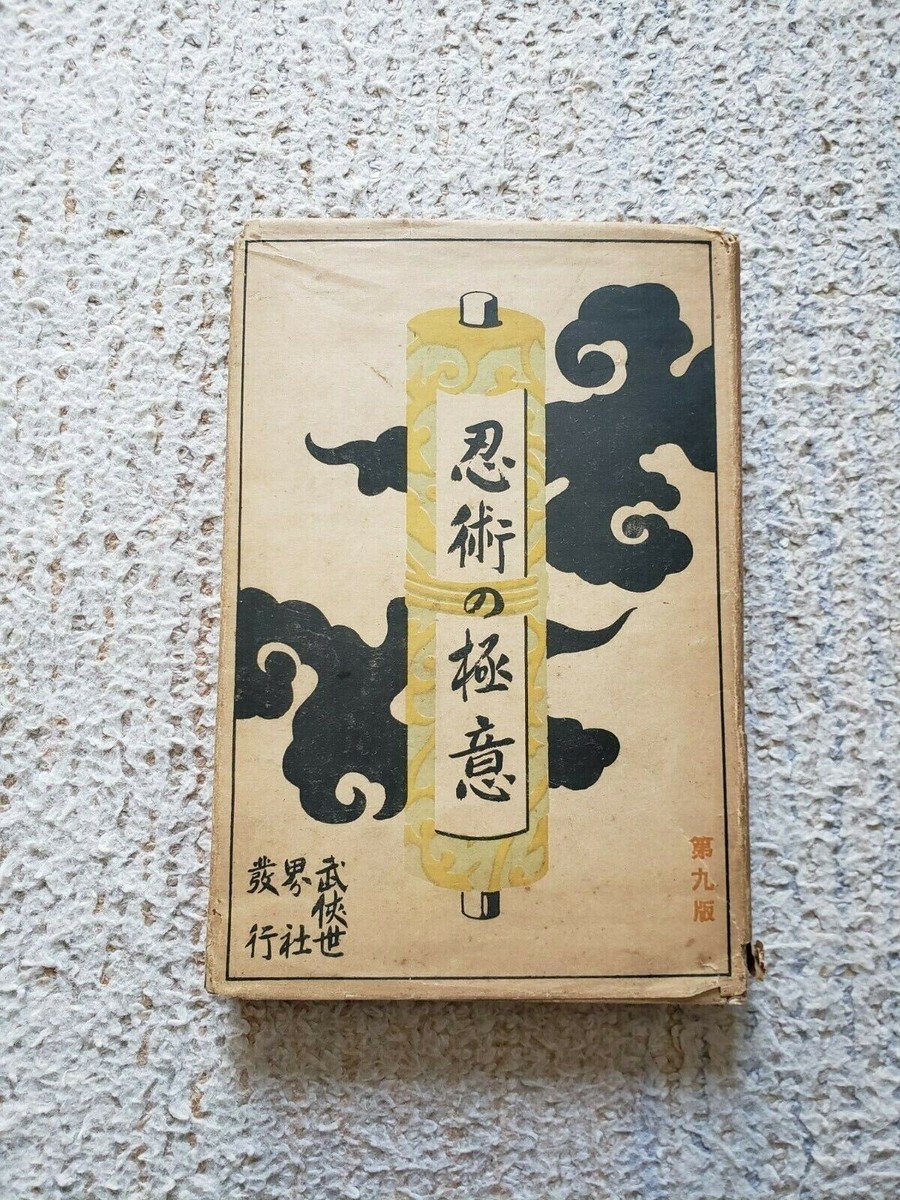 忍術の極意
第九版
武侠世
界社
發行